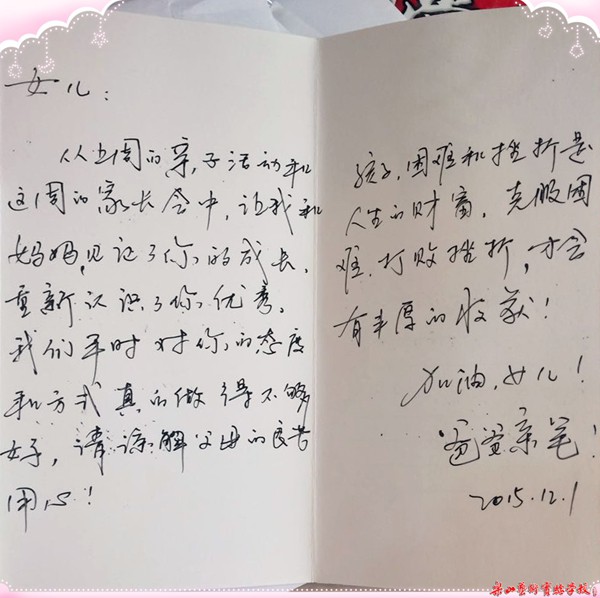 女儿：
从上周的亲子活动和
这周的家长会中，让我和
妈妈，见证了你的成长，
重新认识了你优秀。
我们平时对你的态度
和方式真的做得不够
好，请谅解父母的良苦
用心！
孩子，困难和挫折是
人生的财富，克服困
难，打败挫折，才会
有丰厚的收获！
加油，女儿！
爸爸亲笔！
2015.12.1
梁山艺术实验学校